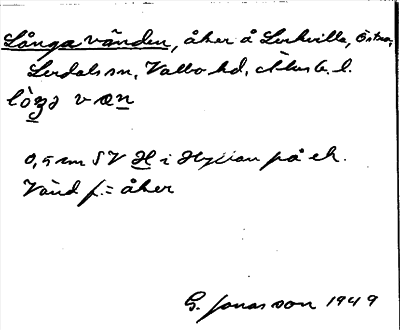 Långa vänden, åker å Lerkvilla, Östra,
Lerdals sn, Valbo hd, Älvsb. l.
lòŋa væn
0,5 cm SV H i Hyltan på ek.
Vänd f. = åker
G. Jonasson 1949